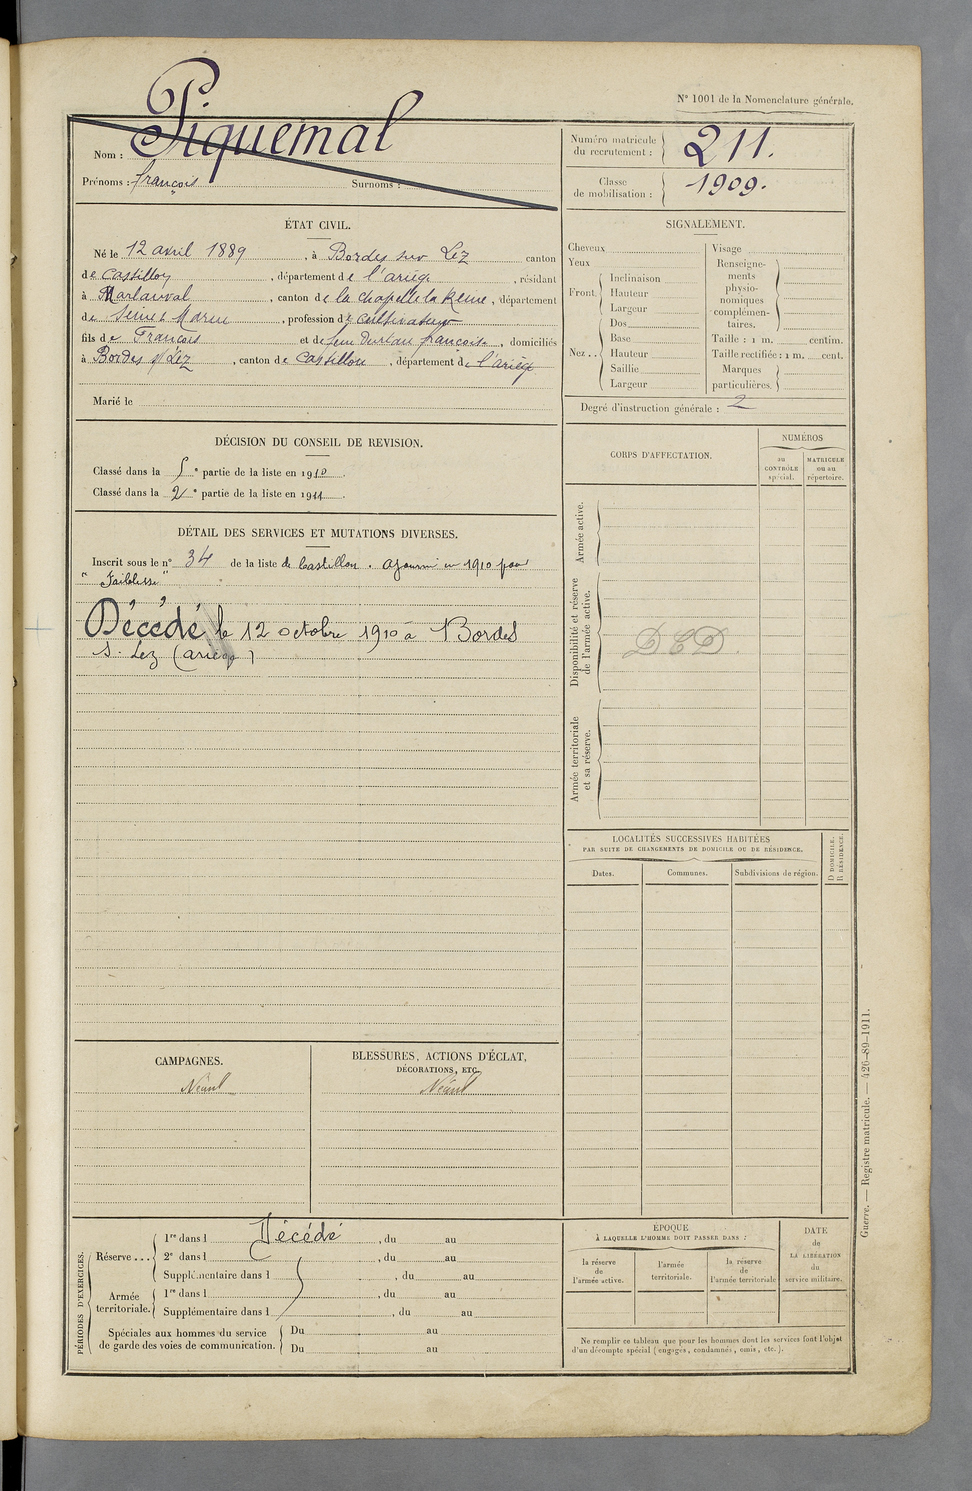 N° 1001 de la Nomenclature générale.
Nom : Piquemal
Prénoms : françois Surnoms :
Numéro matricule du recrutement : 211.
Classe de mobilisation : 1909.
ÉTAT CIVIL.
Né le 12 avril 1889, à Bordes sur Lez canton
de Castillon, département de l'ariège, résidant
à, canton de la chapelle la Reine, département
de Seine & Marne, profession de Cultivateur
fils de François et de feue françoise, domiciliés
à Bordes s/ Lez, canton de Castillon, département de l'ariège
Marié le
SIGNALEMENT.
Cheveux
Yeux
Front
Inclinaison
Hauteur
Largeur
Nez ..
Dos
Base
Hauteur
Saillie
Largeur
Visage
Renseigne-
ments
physio-
nomiques
complémen-
taires.
Taille : 1 m. centim.
Taille rectifiée : 1 m. cent.
Marques
particulières.
Degré d'instruction générale : 2
DÉCISION DU CONSEIL DE REVISION.
Classé dans la 5e partie de la liste en 1910.
Classé dans la 2e partie de la liste en 1911.
DÉTAIL DES SERVICES ET MUTATIONS DIVERSES.
Inscrit sous le n° 34 de la liste de Castillon. ajourné en 1910 pour
" Faiblesse "
Décédé le 12 octobre 1910 à Bordes
s. Lez (ariège)
CORPS D'AFFECTATION.
NUMÉROS
au CONTRÔLE spécial.
MATRICULE ou au répertoire.
Armée active.
Disponibilité et réserve de l'armée active.
DCD.
Armée territoriale et sa réserve.
LOCALITÉS SUCCESSIVES HABITÉES
PAR SUITE DE CHANGEMENTS DE DOMICILE OU DE RÉSIDENCE.
D DOMICILE.
R RÉSIDENCE.
Dates. Communes. Subdivisions de région.
CAMPAGNES.
Néant
BLESSURES, ACTIONS D'ÉCLAT,
DÉCORATIONS, ETC.
Néant
PÉRIODES D'EXERCICES.
Réserve ...
1re dans l Décédé, du au
2e dans l, du au
Supplémentaire dans l, du au
Armée territoriale.
1re dans l, du au
Supplémentaire dans l, du au
Spéciales aux hommes du service
de garde des voies de communication.
Du au
Du au
ÉPOQUE
À LAQUELLE L'HOMME DOIT PASSER DANS :
la réserve de l'armée active.
l'armée territoriale.
la réserve de l'armée territoriale
DATE de LA LIBÉRATION du service militaire.
Ne remplir ce tableau que pour les hommes dont les services font l'objet
d'un décompte spécial (engagés, condamnés, omis, etc.).
Guerre. — Registre matricule. — 426-89-1911.